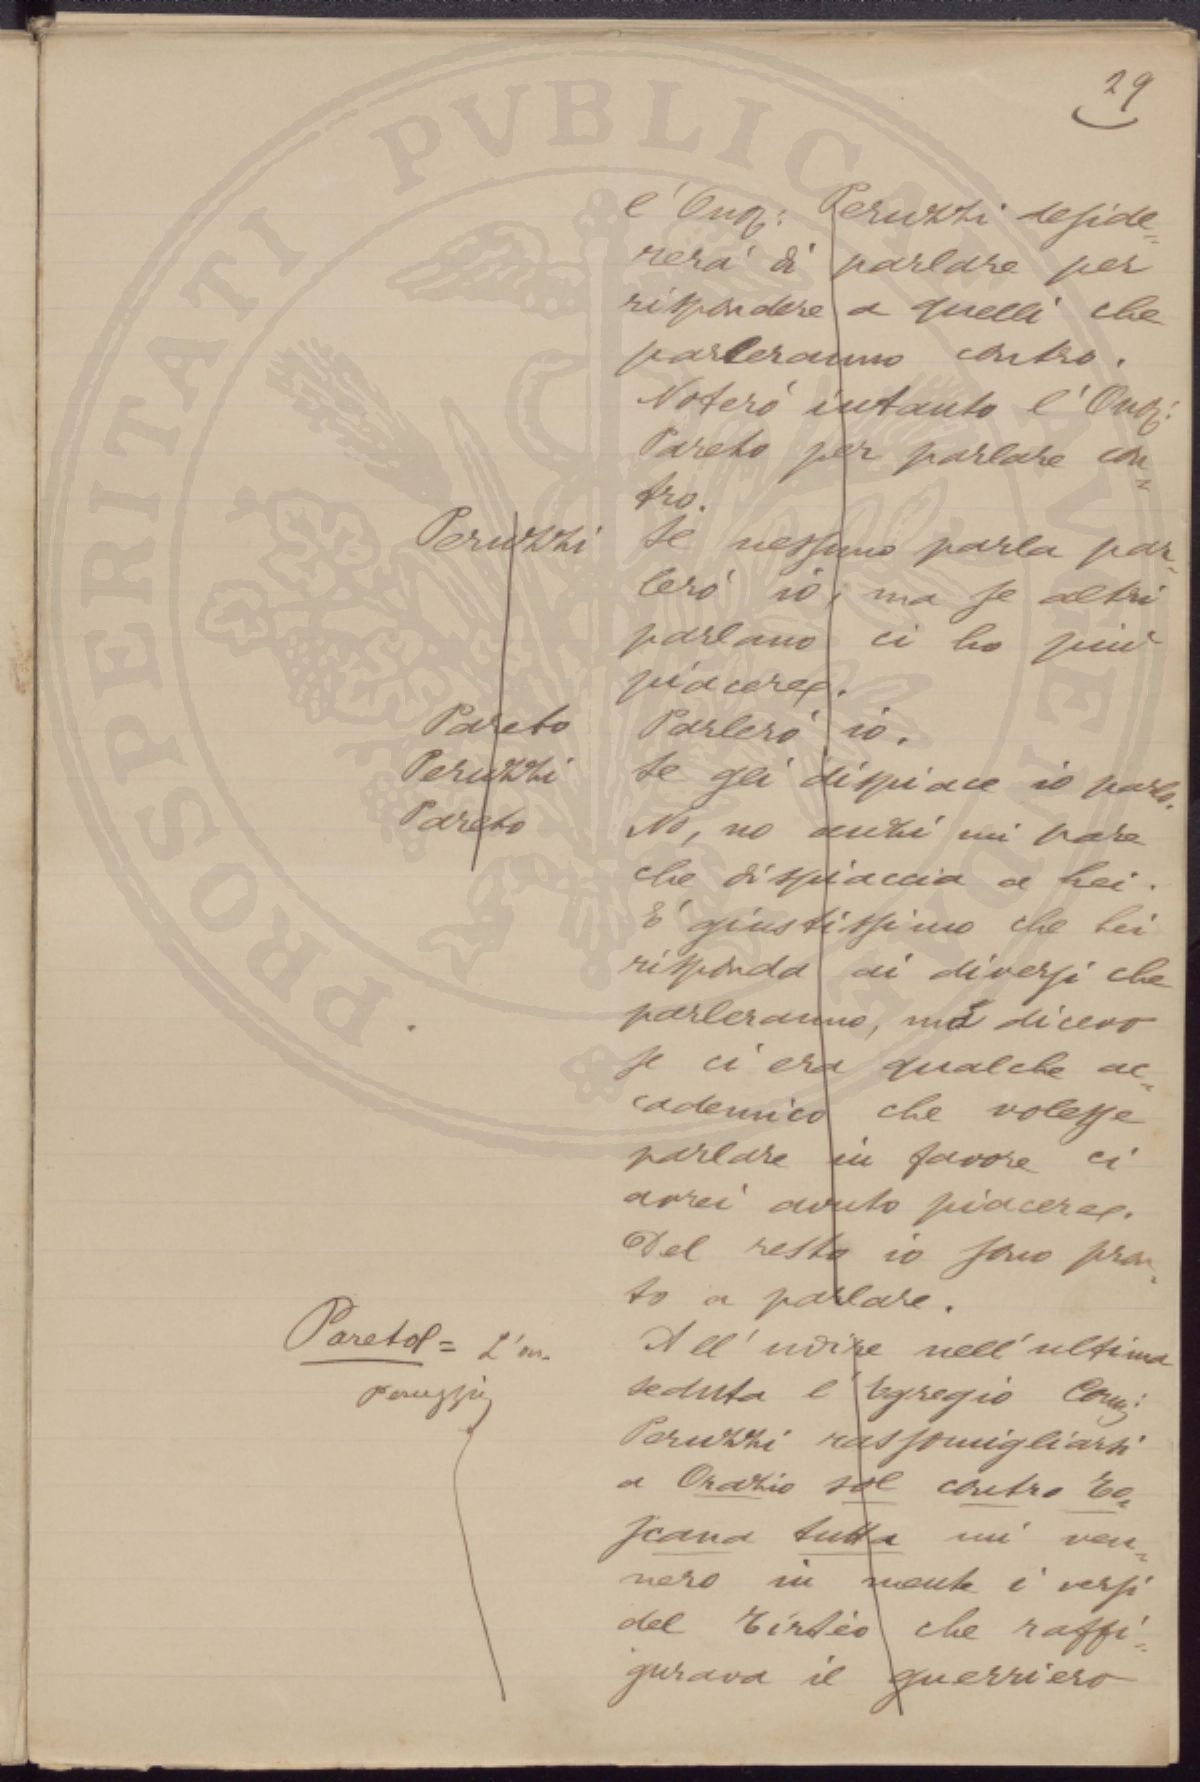 29
l'Onor: Peruzzi deside=
rerá di parlare per
rispondere a quelli che
parleranno contro.
Noteró intanto l'Onor:
Pareto per parlare con=
tro.
Peruzzi Se nessuno parla par=
leró io, ma se altri
parlano ci ho piú
piacere.
Pareto Parleró io.
Peruzzi Se gli dispiace io parlo.
Pareto No, no anzi mi pare
che dispiaccia a Lei.
E' giustissimo che Lei
risponda ai diversi che
parleranno, ma dicevo
se ci era qualche ac=
cademico che volesse
parlare in favore ci
avrei avuto piacere.
Del resto io sono pron=
to a parlare.
Pareto = L'on. All'udire nell'ultima
Peruzzi seduta l'Egregio Comm:
Peruzzi rassomigliarsi
a Orazio sol contro To=
scana tutta mi ven=
nero in mente i versi
del Tirtéo che raffi=
gurava il guerriero
PROSPERITATI PVBLICAE AVGENDAE